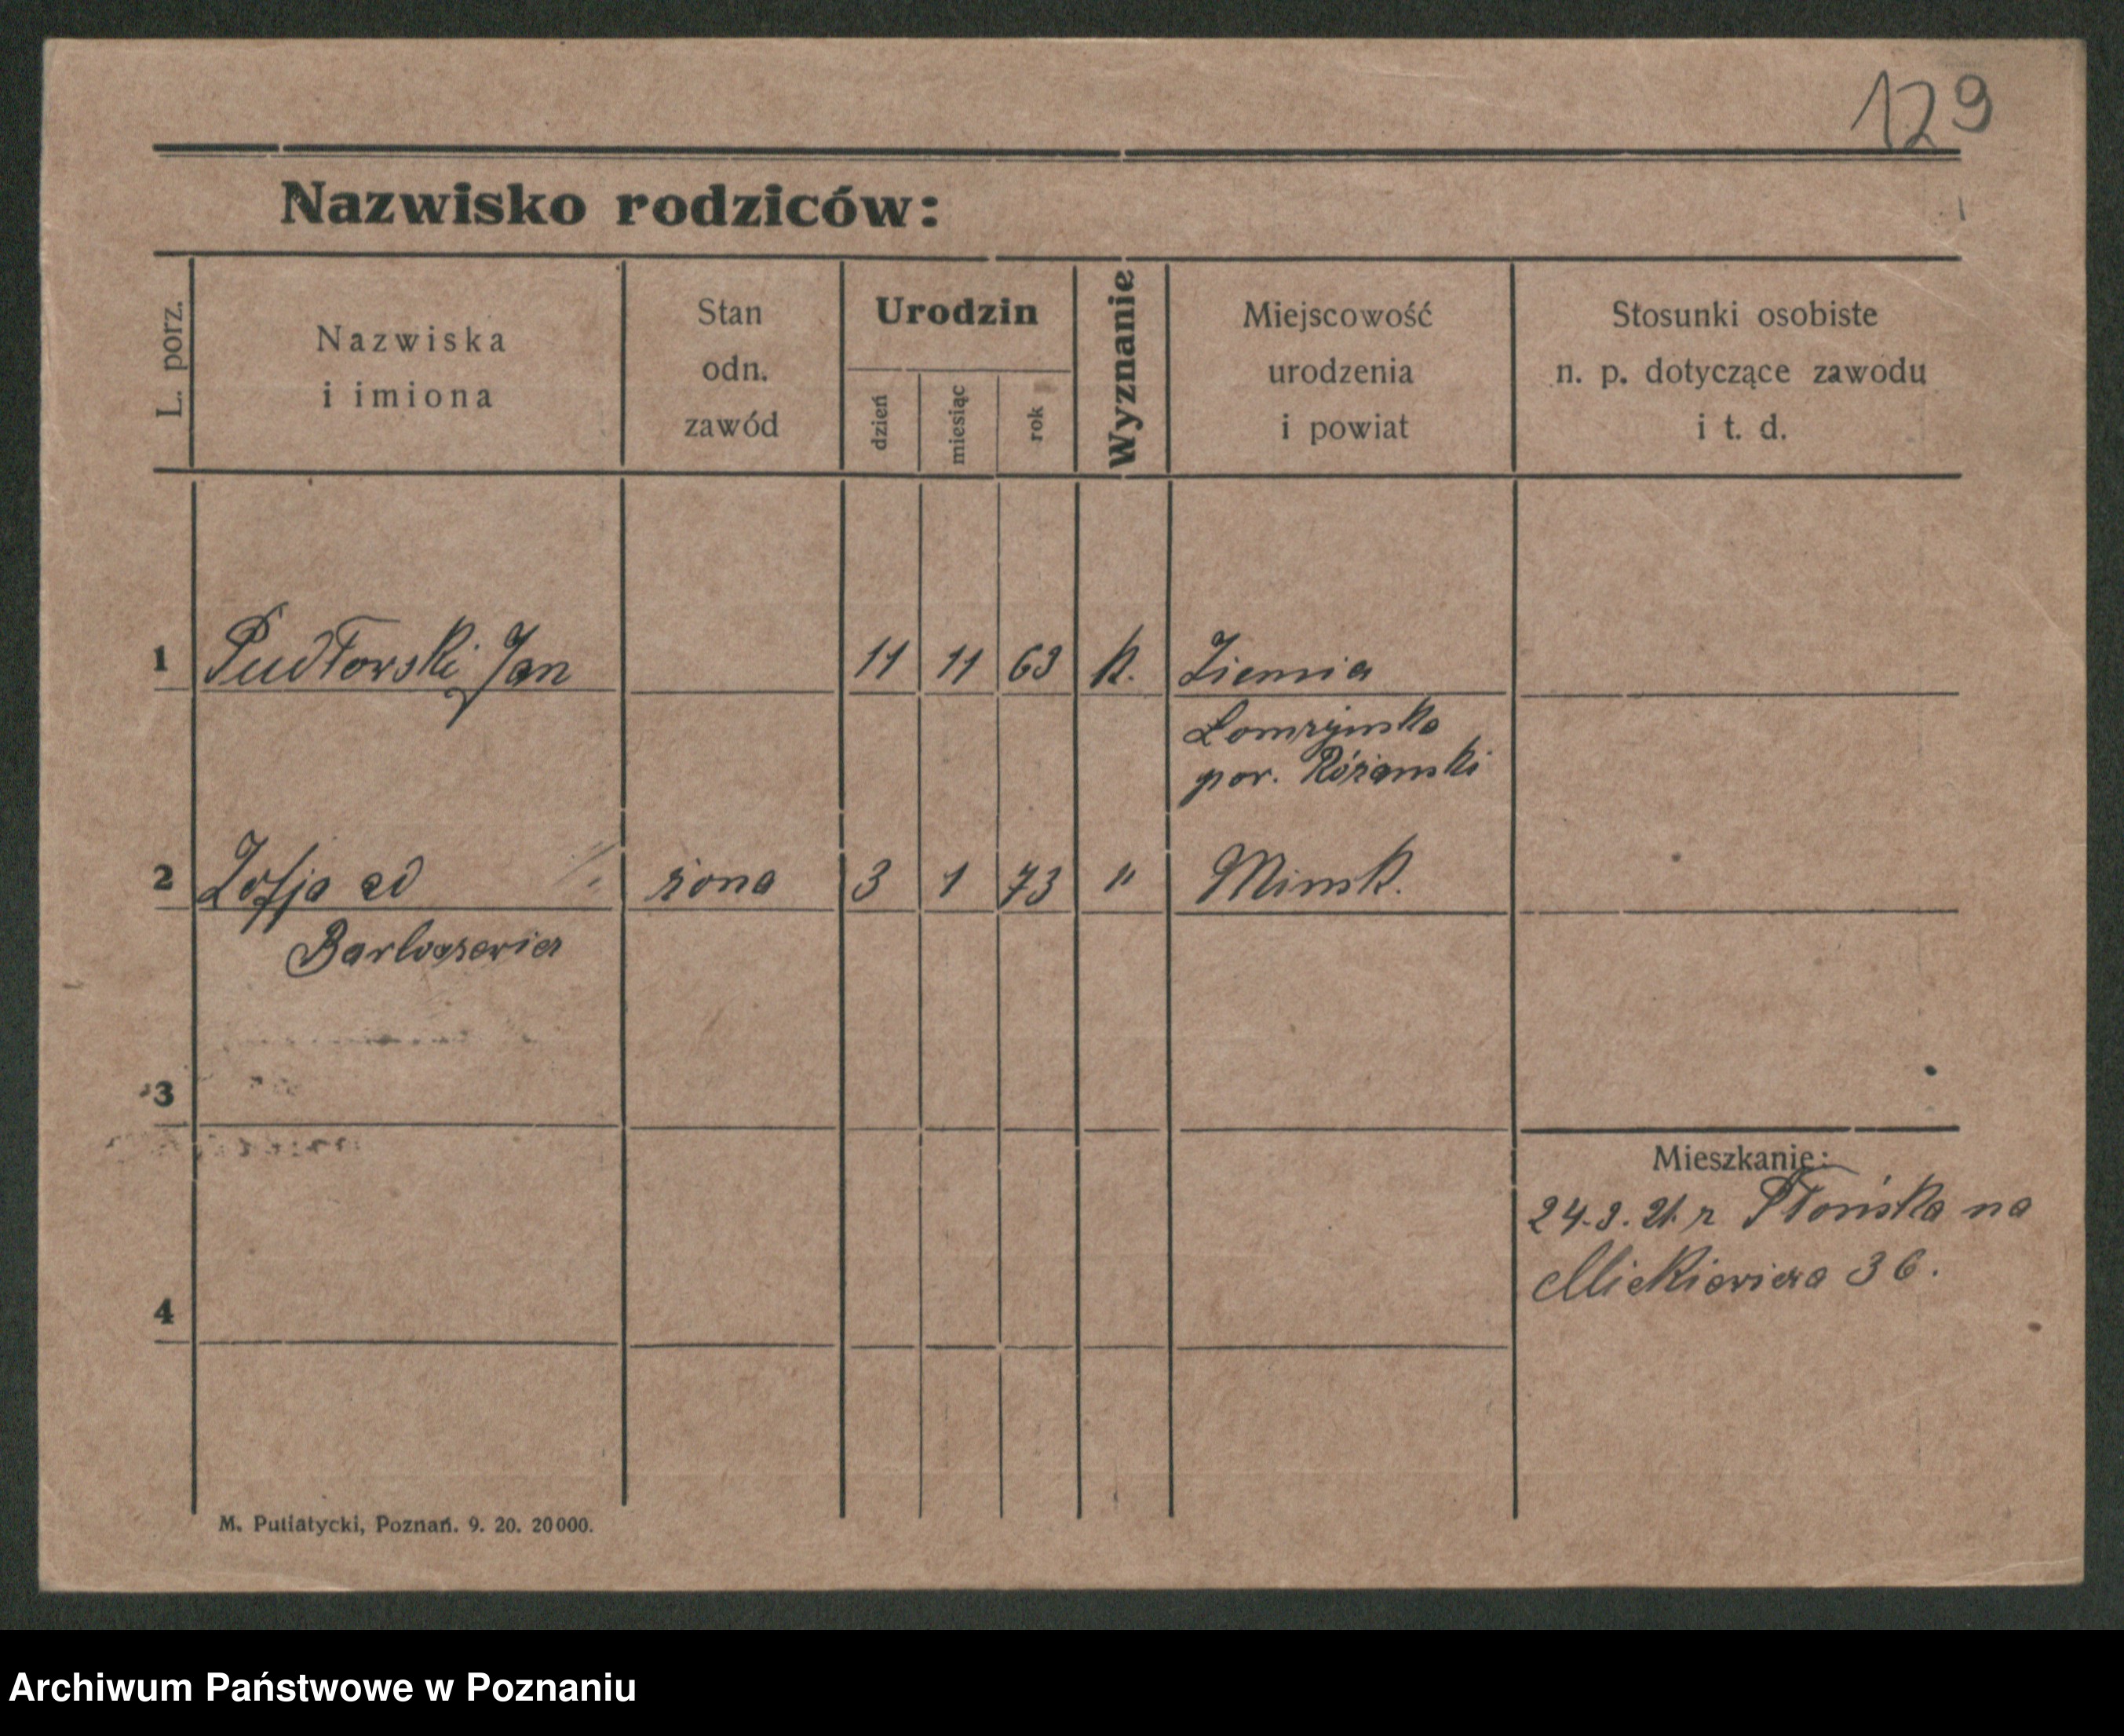 129
Nazwisko rodziców:
L. porz.
Nazwiska
i imiona
Stan
odn.
zawód
Urodzin
dzień
miesiąc
rok
Wyznanie
Miejscowość
urodzenia
i powiat
Stosunki osobiste
n. p. dotyczące zawodu
i t. d.
1 Pudłowski Jan 11 11 63 k. Ziemia
Łomżyńska
pow. Różański
2 Zofja zd żona 3 1 73 " Minsk.
Bartoszewicz
3
Mieszkanie:
24.9.21 r Płońska na
Mickiewicza 36.
4
M. Putiatycki, Poznań. 9. 20. 20000.
Archiwum Państwowe w Poznaniu